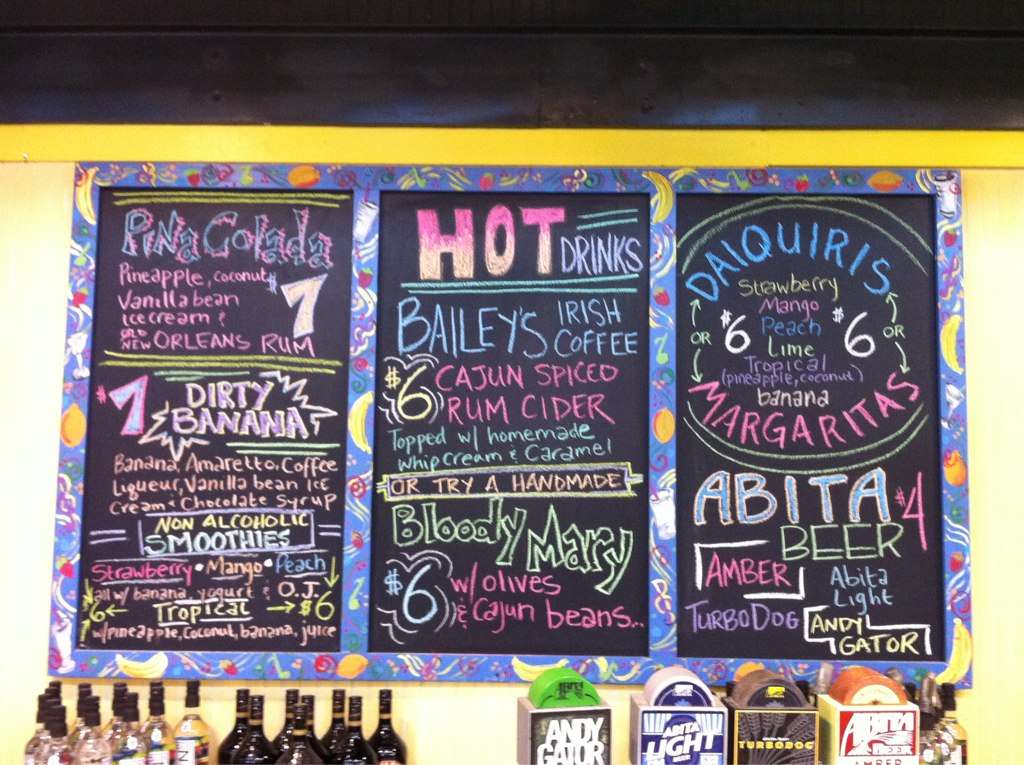 Piña Colada
Pineapple, coconut
Vanilla bean
ice cream &
OLD NEW ORLEANS RUM
$7
$7
DIRTY
BANANA
Banana, Amaretto, Coffee
Liqueur, Vanilla bean Ice
Cream & Chocolate Syrup
NON ALCOHOLIC
SMOOTHIES
Strawberry • Mango • Peach
all w/ banana, yogurt & O.J.
$6 ← Tropical → $6
w/pineapple, Coconut, banana, juice
HOT
DRINKS
BAILEY'S IRISH
COFFEE
$6
CAJUN SPICED
RUM CIDER
Topped w/ homemade
whip cream & Caramel
OR TRY A HANDMADE
Bloody Mary
$6
w/ olives
& Cajun beans...
DAIQUIRIS
Strawberry
Mango
OR $6 Peach $6 OR
Lime
Tropical
(pineapple, coconut)
banana
MARGARITAS
ABITA
BEER
$4
AMBER
Abita
Light
TURBODOG
ANDY
GATOR
ANDY
GATOR
ABITA
LIGHT
TURBODOG
ABITA
BEER
AMBER